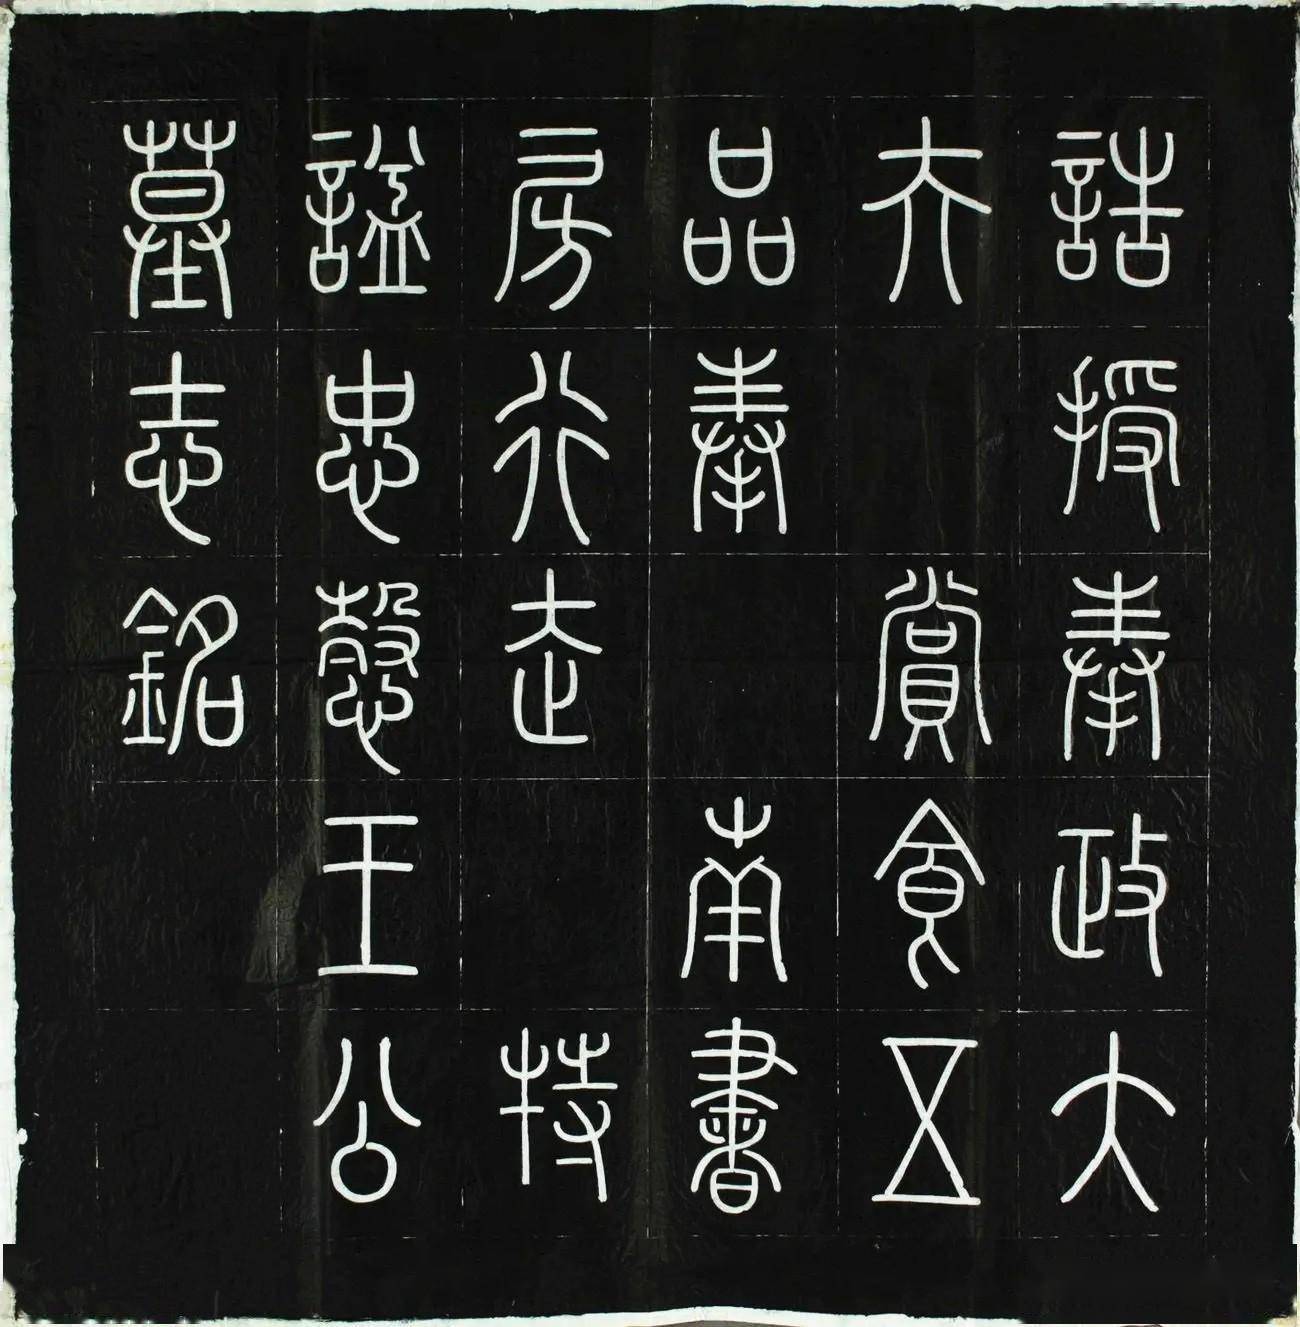 誥授奉政大
夫 賞食五
品奉 南書
房行走 特
諡忠愨王公
墓志銘